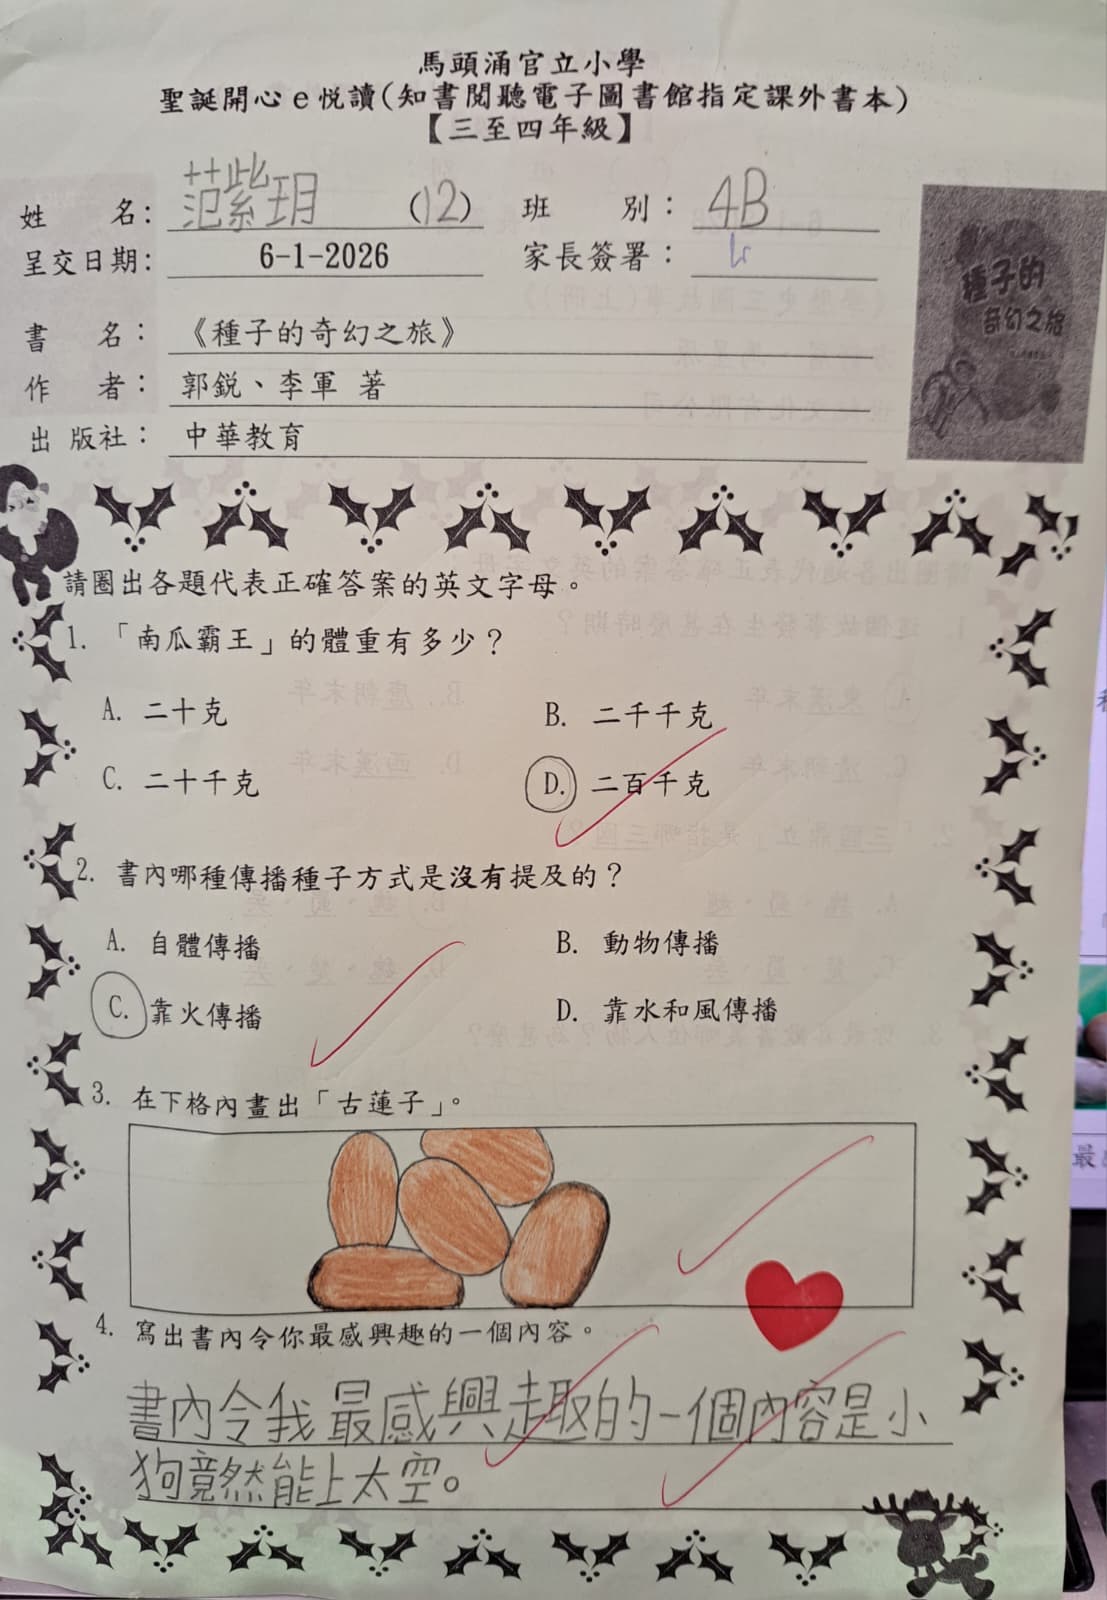 馬頭涌官立小學
聖誕開心e悅讀(知書閱聽電子圖書館指定課外書本)
【三至四年級】
姓 名: 范紫玥 (12) 班 別: 4B
呈交日期: 6-1-2026 家長簽署:
書 名: 《種子的奇幻之旅》
作 者: 郭銳、李軍 著
出 版社: 中華教育
種子的
奇幻之旅
請圈出各題代表正確答案的英文字母。
1. 「南瓜霸王」的體重有多少?
A. 二十克 B. 二千千克
C. 二十千克 D. 二百千克
2. 書內哪種傳播種子方式是沒有提及的?
A. 自體傳播 B. 動物傳播
C. 靠火傳播 D. 靠水和風傳播
3. 在下格內畫出「古蓮子」。
4. 寫出書內令你最感興趣的一個內容。
書內令我最感興趣的一個內容是小
狗竟然能上太空。